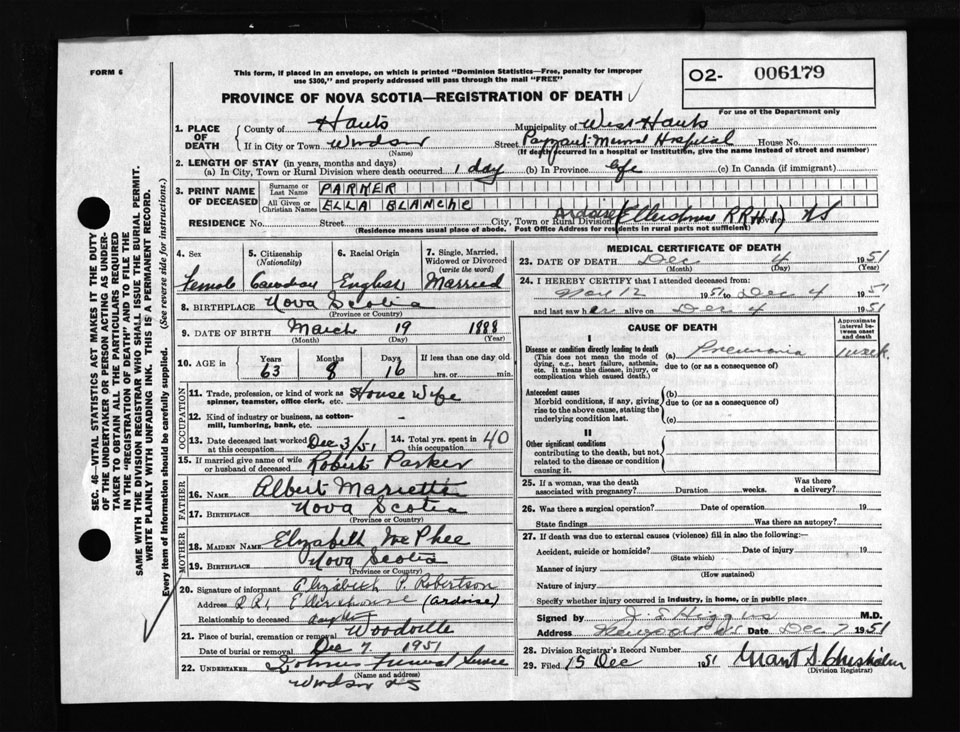 FORM 6
This form, if placed in an envelope, on which is printed "Dominion Statistics—Free, penalty for improper
use $300," and properly addressed will pass through the mail "FREE"
O2- 006179
PROVINCE OF NOVA SCOTIA—REGISTRATION OF DEATH
For use of the Department only
1. PLACE OF DEATH
County of Hants Municipality of West Hants
If in City or Town Windsor Street Payzant Mem'l Hospital House No.
(Name) (If death occurred in a hospital or institution, give the name instead of street and number)
2. LENGTH OF STAY (in years, months and days)
(a) In City, Town or Rural Division where death occurred 1 day (b) In Province life (c) In Canada (if immigrant)
3. PRINT NAME OF DECEASED
Surname or Last Name PARKER
All Given or Christian Names ELLA BLANCHE
RESIDENCE No. Street City, Town or Rural Division Ardoise (Ellershouse R R #1) NS
(Residence means usual place of abode. Post Office Address for residents in rural parts not sufficient)
4. Sex Female
5. Citizenship (Nationality) Canadian
6. Racial Origin English
7. Single, Married, Widowed or Divorced (write the word) Married
8. BIRTHPLACE Nova Scotia
(Province or Country)
9. DATE OF BIRTH March 19 1888
(Month) (Day) (Year)
10. AGE in Years 63 Months 8 Days 16 If less than one day old hrs. or min.
OCCUPATION
11. Trade, profession, or kind of work as spinner, teamster, office clerk, etc. House Wife
12. Kind of industry or business, as cotton-mill, lumbering, bank, etc. -
13. Date deceased last worked at this occupation Dec 3/51
14. Total yrs. spent in this occupation 40
15. If married give name of wife or husband of deceased Robert Parker
FATHER
16. NAME Albert Marietta
17. BIRTHPLACE Nova Scotia
(Province or Country)
MOTHER
18. MAIDEN NAME Elizabeth McPhee
19. BIRTHPLACE Nova Scotia
(Province or Country)
20. Signature of informant Elizabeth P. Robertson
Address RR1 Ellershouse (Ardoise)
Relationship to deceased daughter
21. Place of burial, cremation or removal Woodville
Date of burial or removal Dec 7 1951
22. UNDERTAKER Funeral Service
(Name and address)
Windsor NS
MEDICAL CERTIFICATE OF DEATH
23. DATE OF DEATH Dec 4 1951
(Month) (Day) (Year)
24. I HEREBY CERTIFY that I attended deceased from:
Nov 12 1951 to Dec 4 1951
and last saw her alive on Dec 4 1951
CAUSE OF DEATH
Approximate interval between onset and death
I
Disease or condition directly leading to death (a) Pneumonia 1 week
(This does not mean the mode of dying, e.g., heart failure, asthenia, etc. It means the disease, injury, or complication which caused death.)
due to (or as a consequence of)
Antecedent causes
Morbid conditions, if any, giving rise to the above cause, stating the underlying condition last.
(b)
due to (or as a consequence of)
(c)
II
Other significant conditions
contributing to the death, but not related to the disease or condition causing it.
25. If a woman, was the death associated with pregnancy? Duration weeks. Was there a delivery?
26. Was there a surgical operation? Date of operation 19
State findings Was there an autopsy?
27. If death was due to external causes (violence) fill in also the following:—
Accident, suicide or homicide? Date of injury 19
(State which)
Manner of injury
(How sustained)
Nature of injury
Specify whether injury occurred in industry, in home, or in public place
Signed by J. S. Higgins M.D.
Address Newport NS Date Dec 7 1951
28. Division Registrar's Record Number
29. Filed 15 Dec 1951 Grant S. Chisholm
(Division Registrar)
SEC. 46—VITAL STATISTICS ACT MAKES IT THE DUTY
OF THE UNDERTAKER OR PERSON ACTING AS UNDER-
TAKER TO OBTAIN ALL THE PARTICULARS REQUIRED
IN THE "REGISTRATION OF DEATH" AND TO FILE THE
SAME WITH THE DIVISION REGISTRAR WHO SHALL ISSUE THE BURIAL PERMIT.
WRITE PLAINLY WITH UNFADING INK. THIS IS A PERMANENT RECORD.
Every item of Information should be carefully supplied. (See reverse side for instructions.)